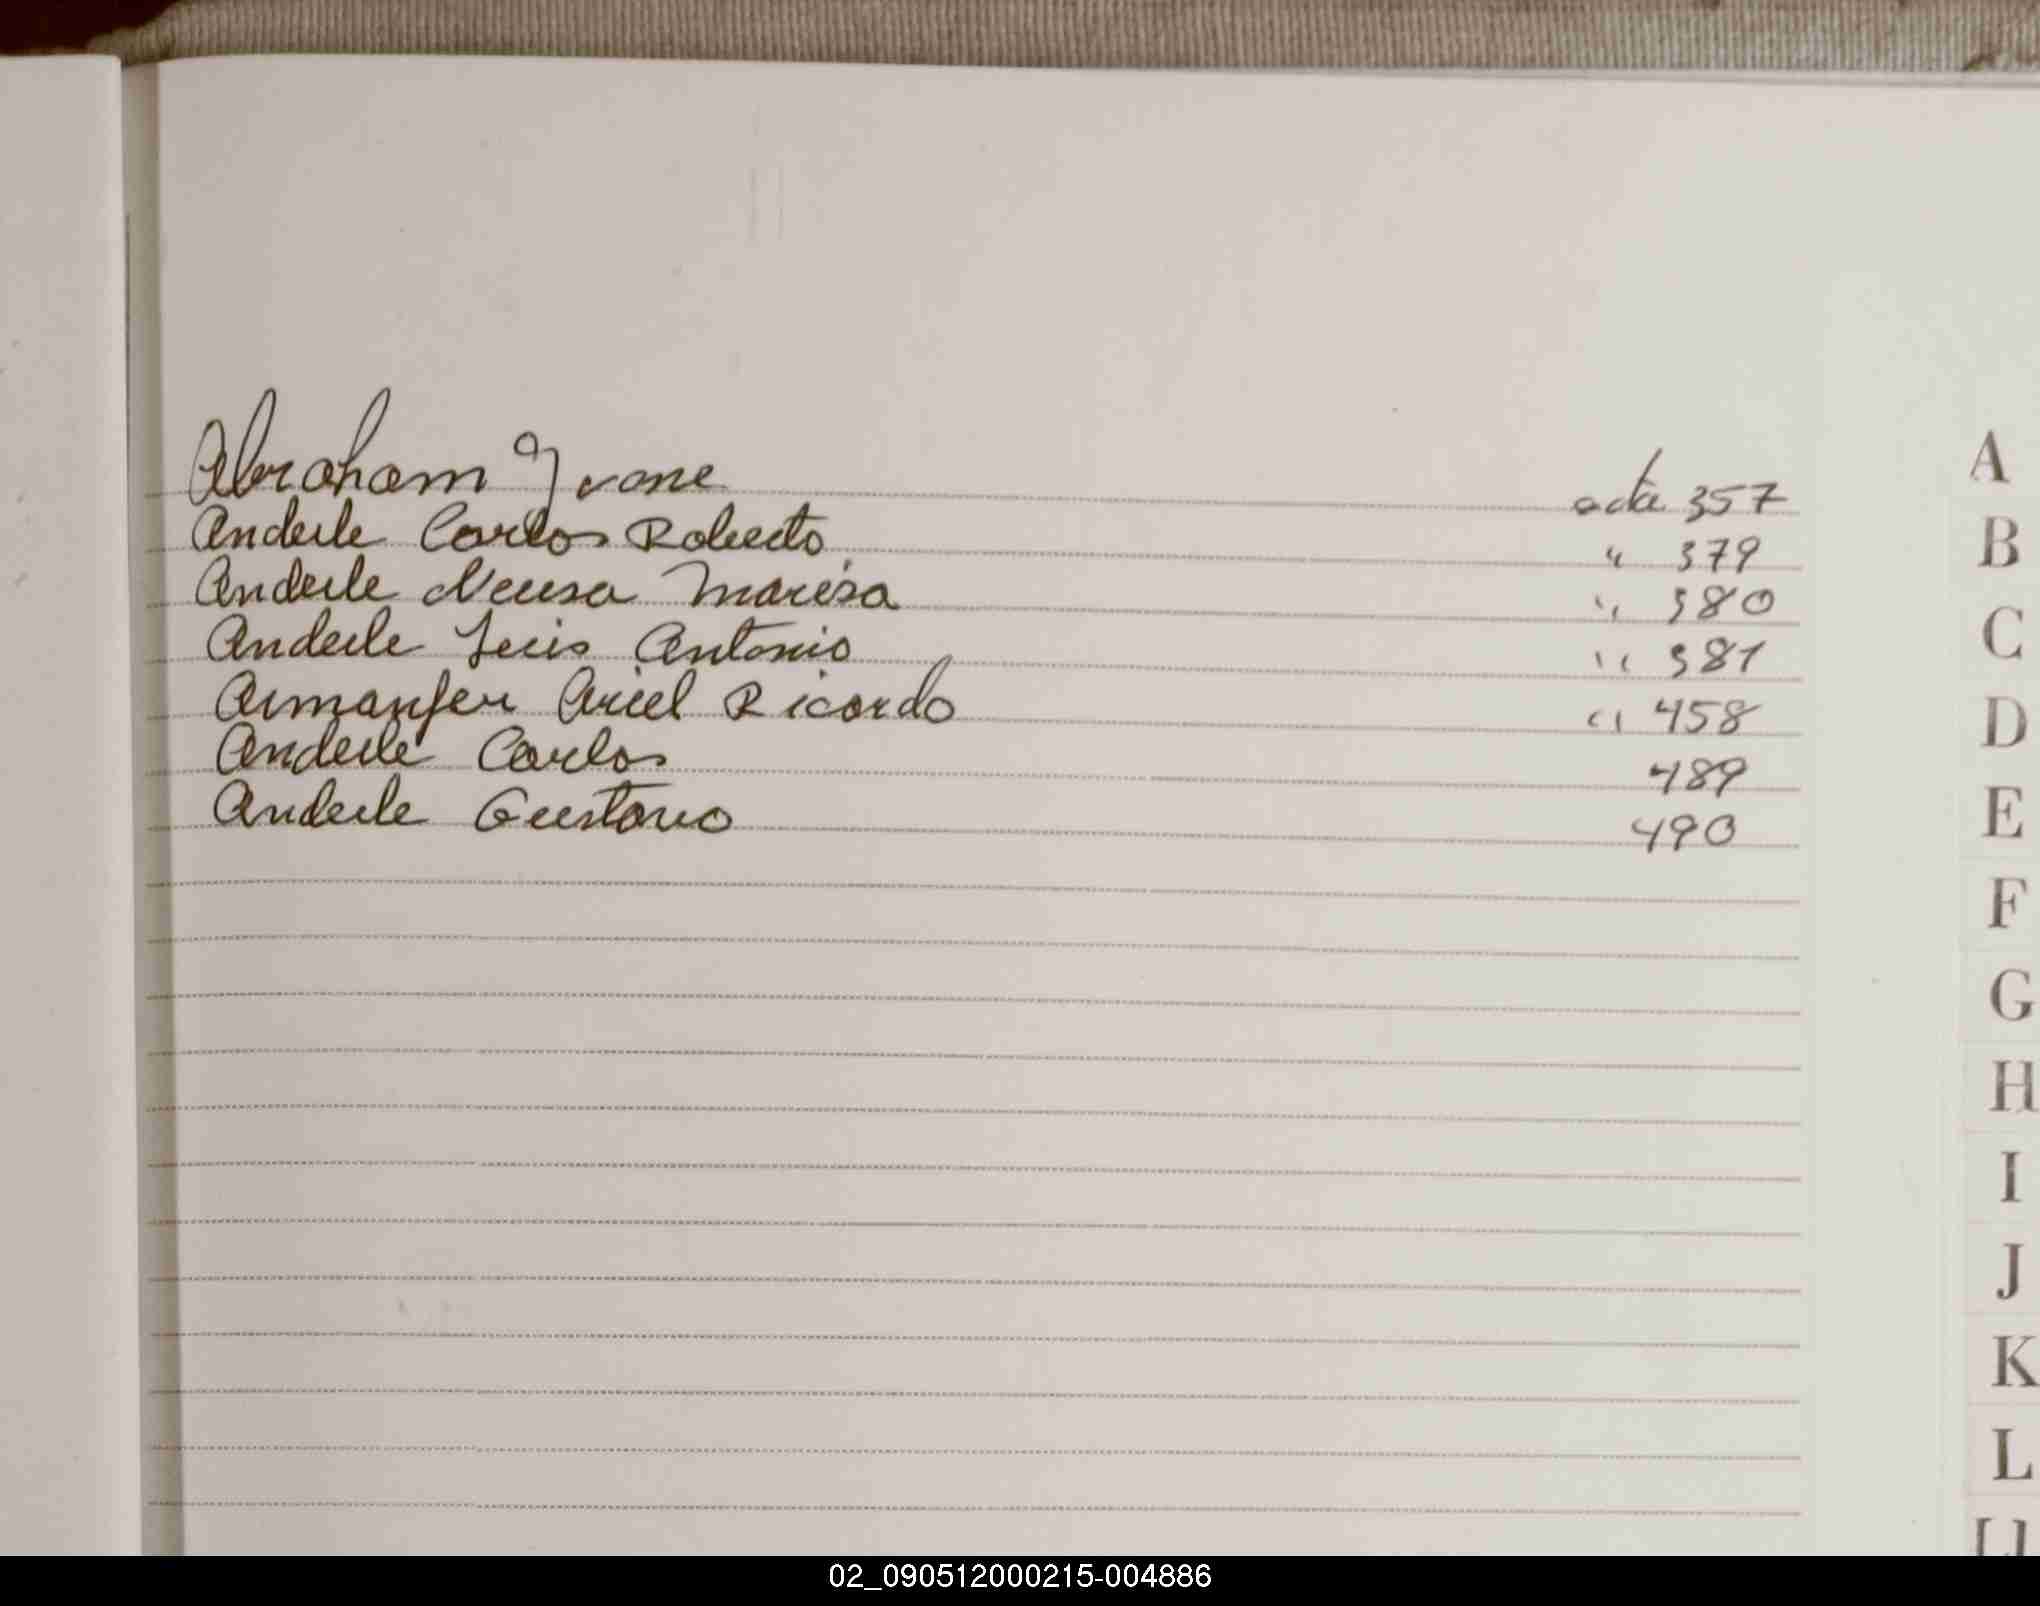 Abraham Ivone acta 357
Anderle Carlos Roberto " 379
Anderle Neusa Marisa " 380
Anderle Luis Antonio " 381
Armanfer Ariel Ricardo " 458
Anderle Carlos 489
Anderle Gustavo 490
A
B
C
D
E
F
G
H
I
J
K
L
02_090512000215-004886